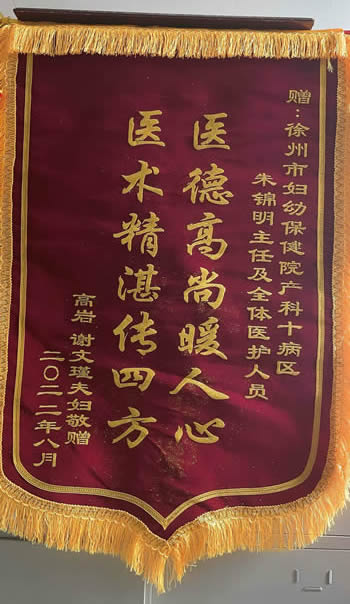 赠：徐州市妇幼保健院产科十病区
朱锦明主任及全体医护人员
医德高尚暖人心
医术精湛传四方
高岩 谢文瑾夫妇敬赠
二〇二二年八月